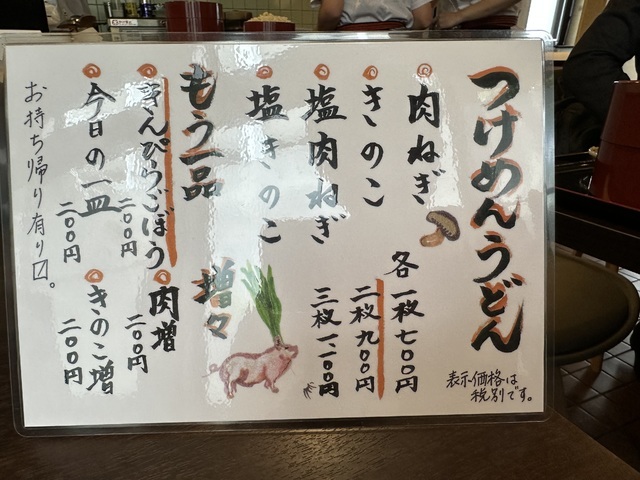 つけめんうどん
肉ねぎ
きのこ
塩肉ねぎ
塩きのこ
各一枚七〇〇円
二枚九〇〇円
三枚一一〇〇円
表示価格は
税別です。
もう一品
きんぴらごぼう
二〇〇円
今日の一皿
二〇〇円
増々
肉増
二〇〇円
きのこ増
二〇〇円
お持ち帰り有り〼。